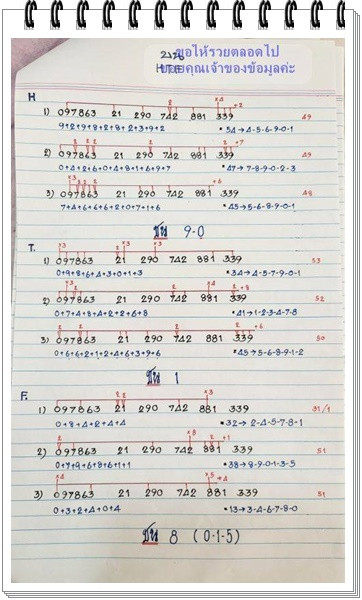 ขอให้รวยตลอดไป
ขอบคุณเจ้าของข้อมูลค่ะ
H
x4 +2
1) 097863 21 290 742 881 339 49
9+2+9+8+2+8+2+3+9+2 * 54→4-5-6-9-0-1
+7
2) 097863 21 290 742 881 339 49
0+4+2+6+0+4+8+1+6+9+7 * 47→7-8-9-0-2-3
+6
3) 097863 21 290 742 881 339 48
7+4+6+6+6+2+0+7+1+6 * 45→5-6-8-9-0-1
9-0
T.
x3 x3 x3
1) 097863 21 290 742 881 339 53
0+9+8+6+4+3+0+1+3 * 34→4-5-7-9-0-1
2 2 x4 2+8
2) 097863 21 290 742 881 339 52
0+7+4+8+4+2+2+6+8 * 41→1-2-3-4-7-8
+6
3) 097863 21 290 742 881 339 50
0+6+6+2+1+2+4+6+3+9+6 * 45→5-6-8-9-1-2
1
F.
2 2 x3
1) 097863 21 290 742 881 339 31/1
0+8+4+2+4+4 * 32→2-4-5-7-8-1
2 x3 2 +1
2) 097863 21 290 742 881 339 51
0+7+9+6+8+6+1+1 * 38→8-9-0-1-3-5
x4 x5 +4
3) 097863 21 290 742 881 339 51
0+3+2+4+0+4 * 13→3-4-6-7-8-0
8 (0-1-5)